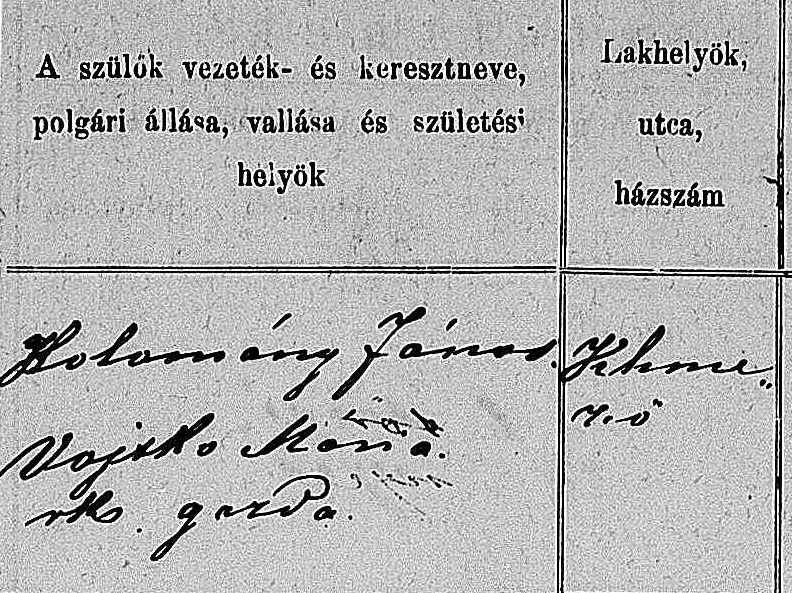 A szülők vezeték- és keresztneve,
polgári állása, vallása és születési
helyök
Lakhelyök,
utca,
házszám
Holomány János.
Vojtko Mária.
rk. gazda.